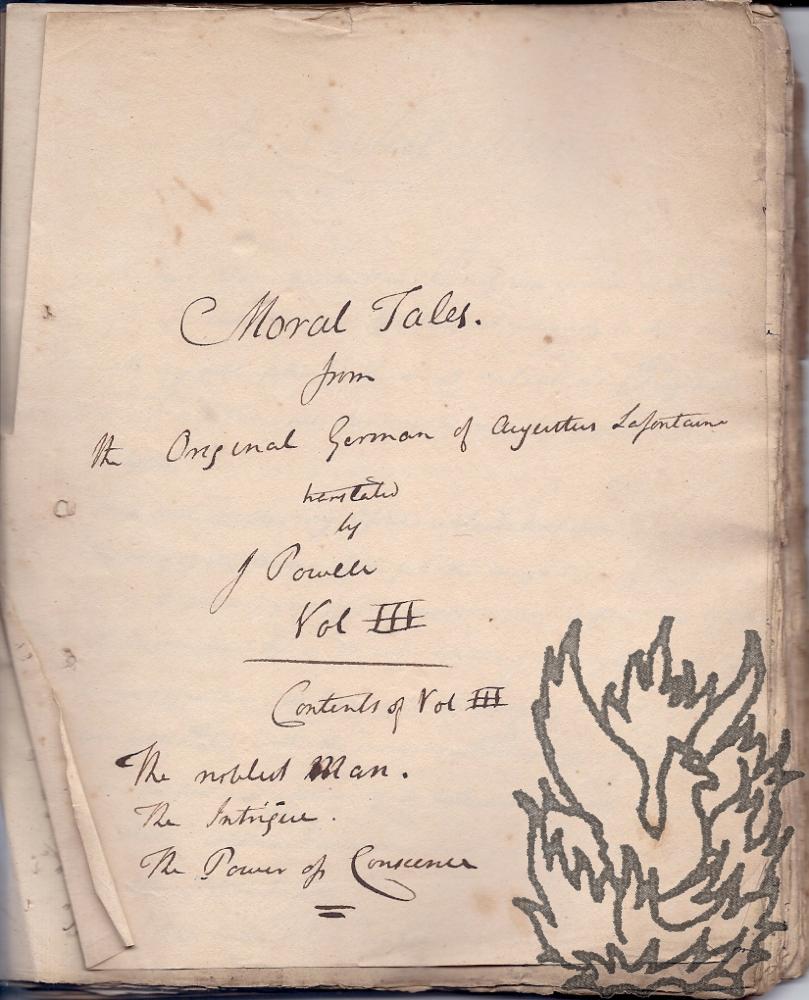 Moral Tales.
from
the Original German of Augustus Lafontaine
translated
by
J Powell
Vol III
Contents of Vol III
The noblest Man.
The Intrigue.
The Power of Conscience